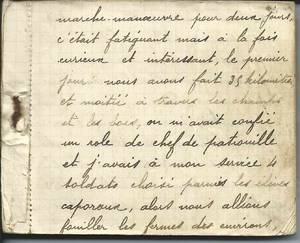 marche-manœuvre pour deux jours,
c'était fatiguant mais à la fois
curieux et intéressant, le premier
jour nous avons fait 35 kilomètres
et moitié à travers les champs
et les bois, on m'avait confié
un role de chef de patrouille
et j'avais à mon service 4
soldats choisi parmis les élèves
caporaux, alors nous allions
fouiller les fermes des environs,